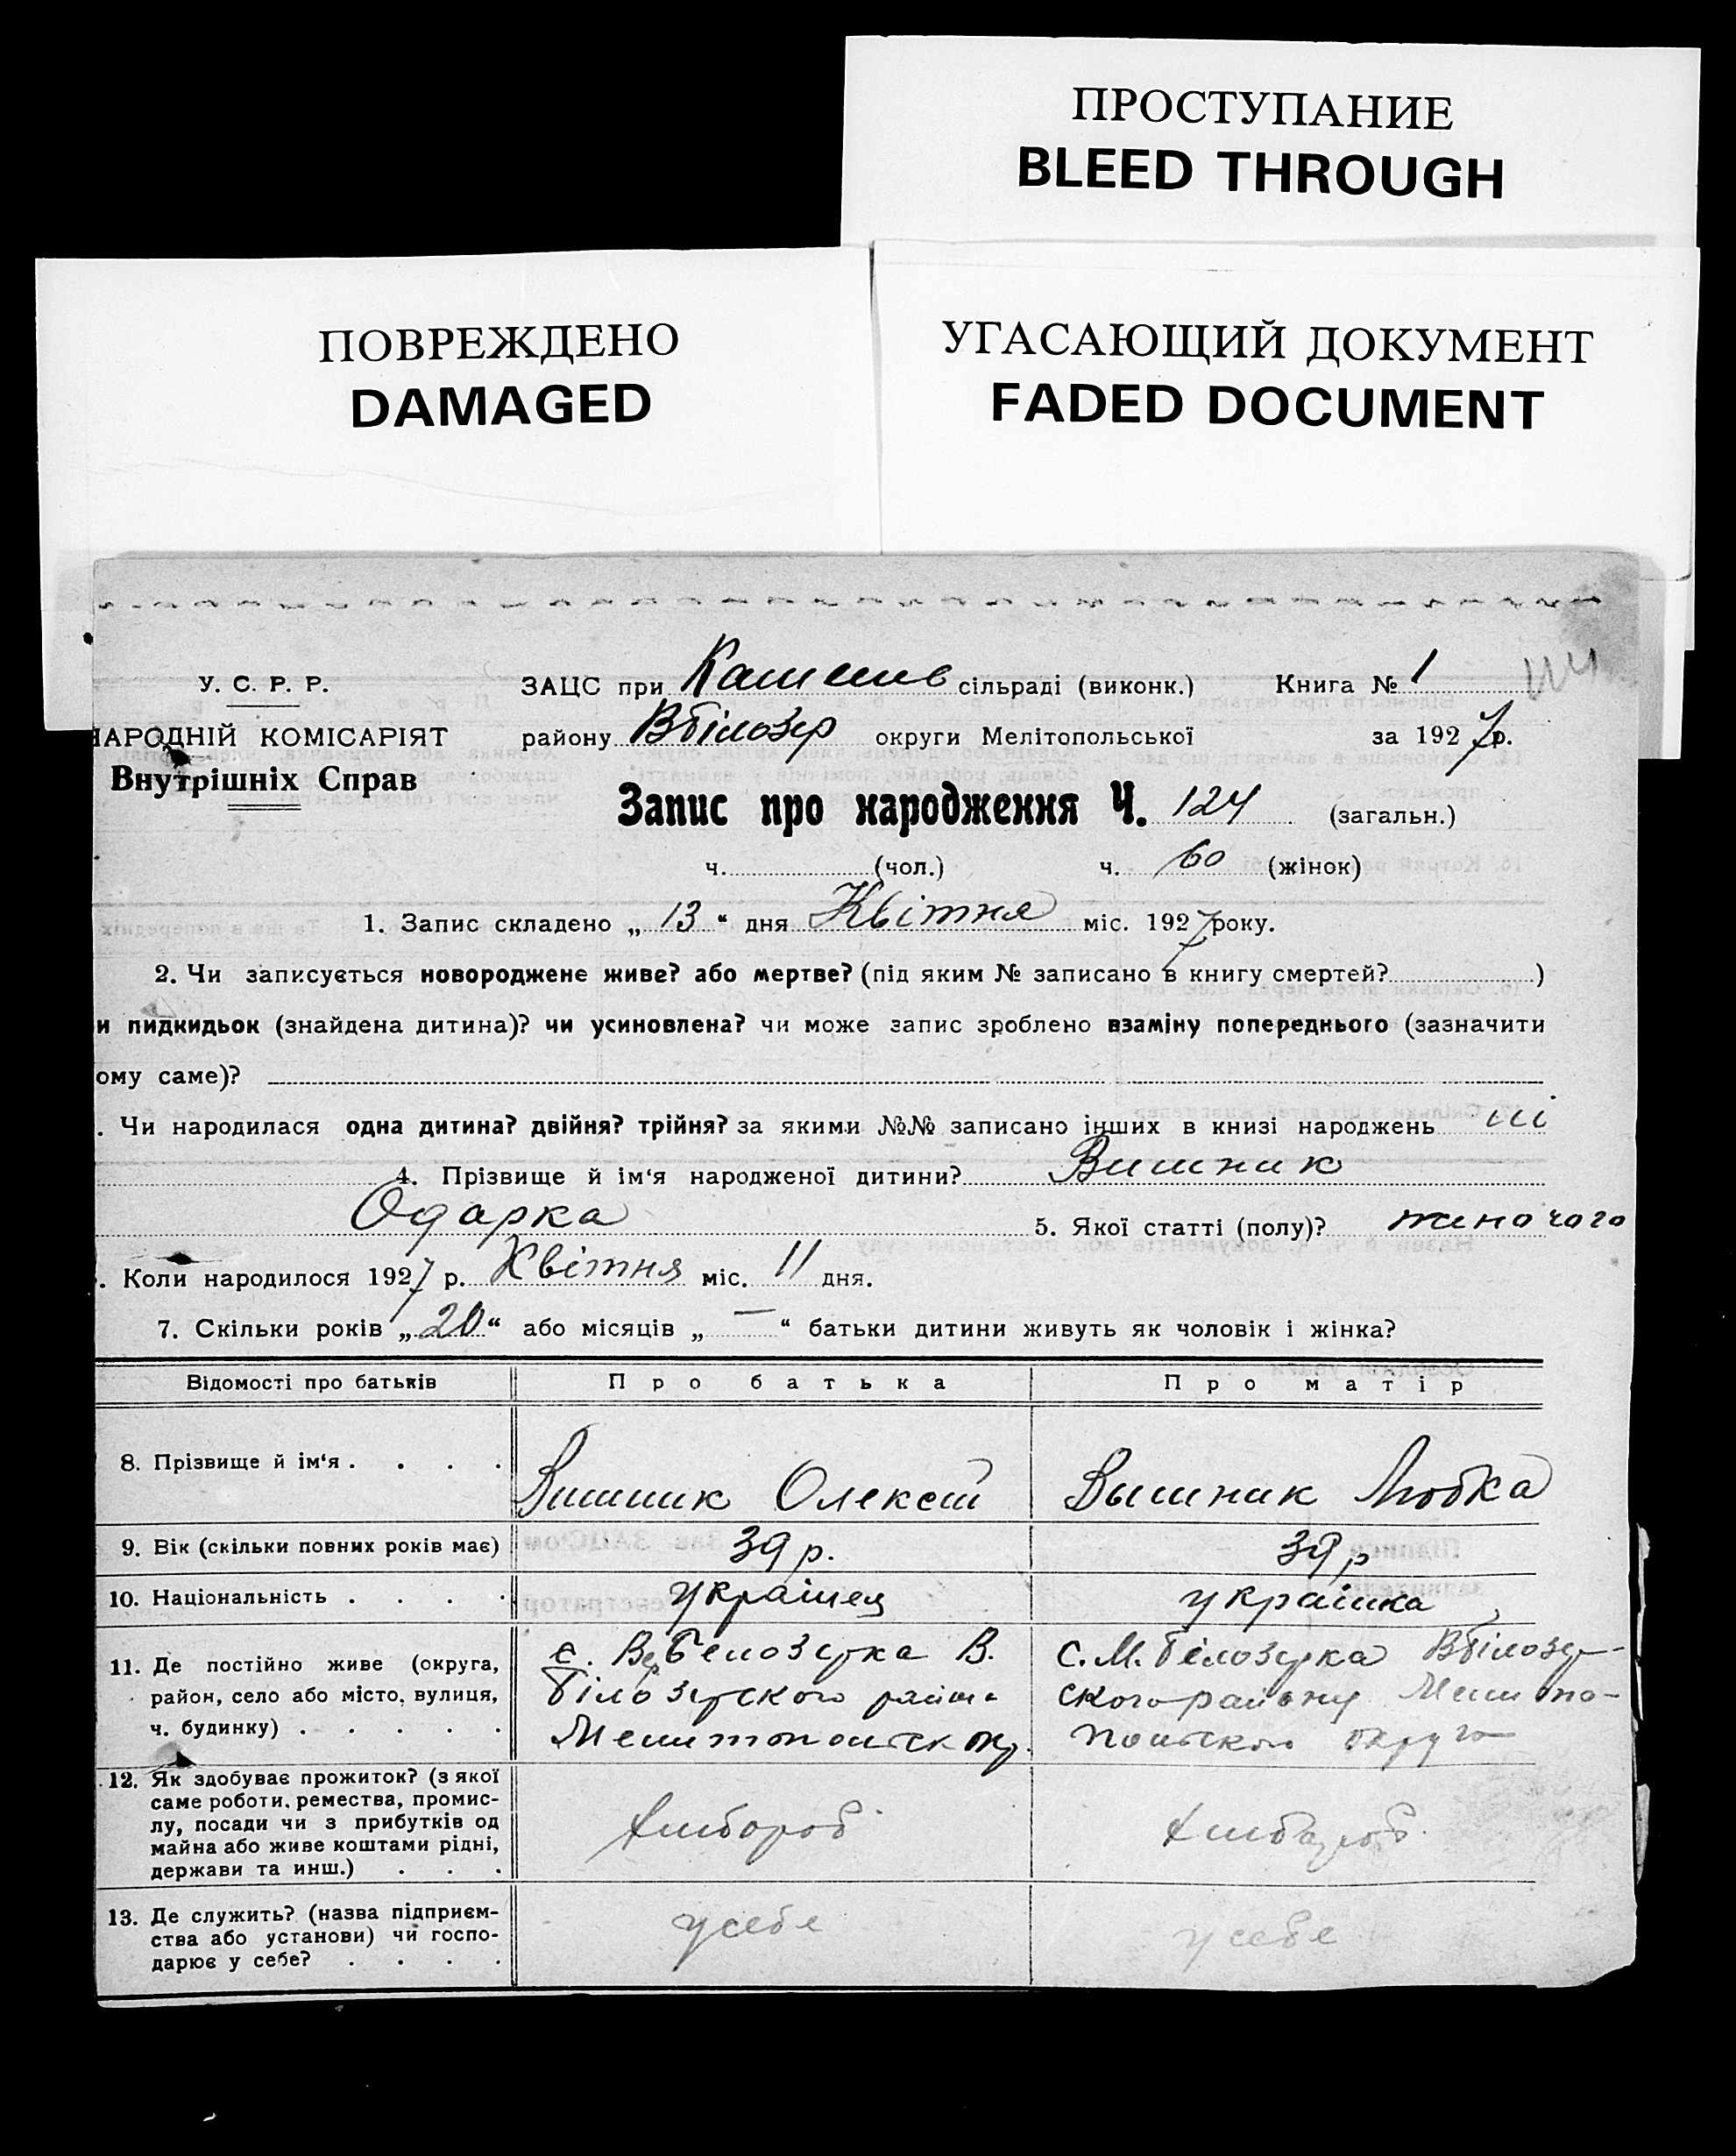 ПРОСТУПАНИЕ
BLEED THROUGH
ПОВРЕЖДЕНО
DAMAGED
УГАСАЮЩИЙ ДОКУМЕНТ
FADED DOCUMENT
У. С. Р. Р.
НАРОДНІЙ КОМІСАРІЯТ
Внутрішніх Справ
ЗАЦС при сільраді (виконк.) Книга № 1
району Вбілозер округи Мелітопольської за 1927 р.
Запис про народження Ч. 124 (загальн.)
ч. (чол.) ч. 60 (жінок)
1. Запис складено „ 13 “ дня Квітня міс. 1927 року.
2. Чи записується новороджене живе? або мертве? (під яким № записано в книгу смертей? )
и пидкидьок (знайдена дитина)? чи усиновлена? чи може запис зроблено взаміну попереднього (зазначити
ому саме)?
. Чи народилася одна дитина? двійня? трійня? за якими №№ записано інших в книзі народжень
4. Прізвище й ім‘я народженої дитини? Вишник
Одарка 5. Якої статті (полу)? жиночого
. Коли народилося 1927 р. Квітня міс. 11 дня.
7. Скільки років „ 20 “ або місяців „ — “ батьки дитини живуть як чоловік і жінка?
Відомості про батьків Про батька Про матір
8. Прізвище й ім‘я . . . . Вишник Олексій Вышник Любка
9. Вік (скільки повних років має) 39 р. 39 р
10. Національність . . . . українец українка
11. Де постійно живе (округа,
район, село або місто, вулиця,
ч. будинку) . . . . .
с. Вербелозерка В.
білозерского района
Мелитопольск окр.
с. М. білозерка Вбілозер-
ского району Мелито-
польского округа
12. Як здобуває прожиток? (з якої
саме роботи, ремества, промис-
лу, посади чи з прибутків од
майна або живе коштами рідні,
держави та инш.) . . .
хлібороб хлібороб.
13. Де служить? (назва підприєм-
ства або установи) чи госпо-
дарює у себе? . . . .
у себе у себе